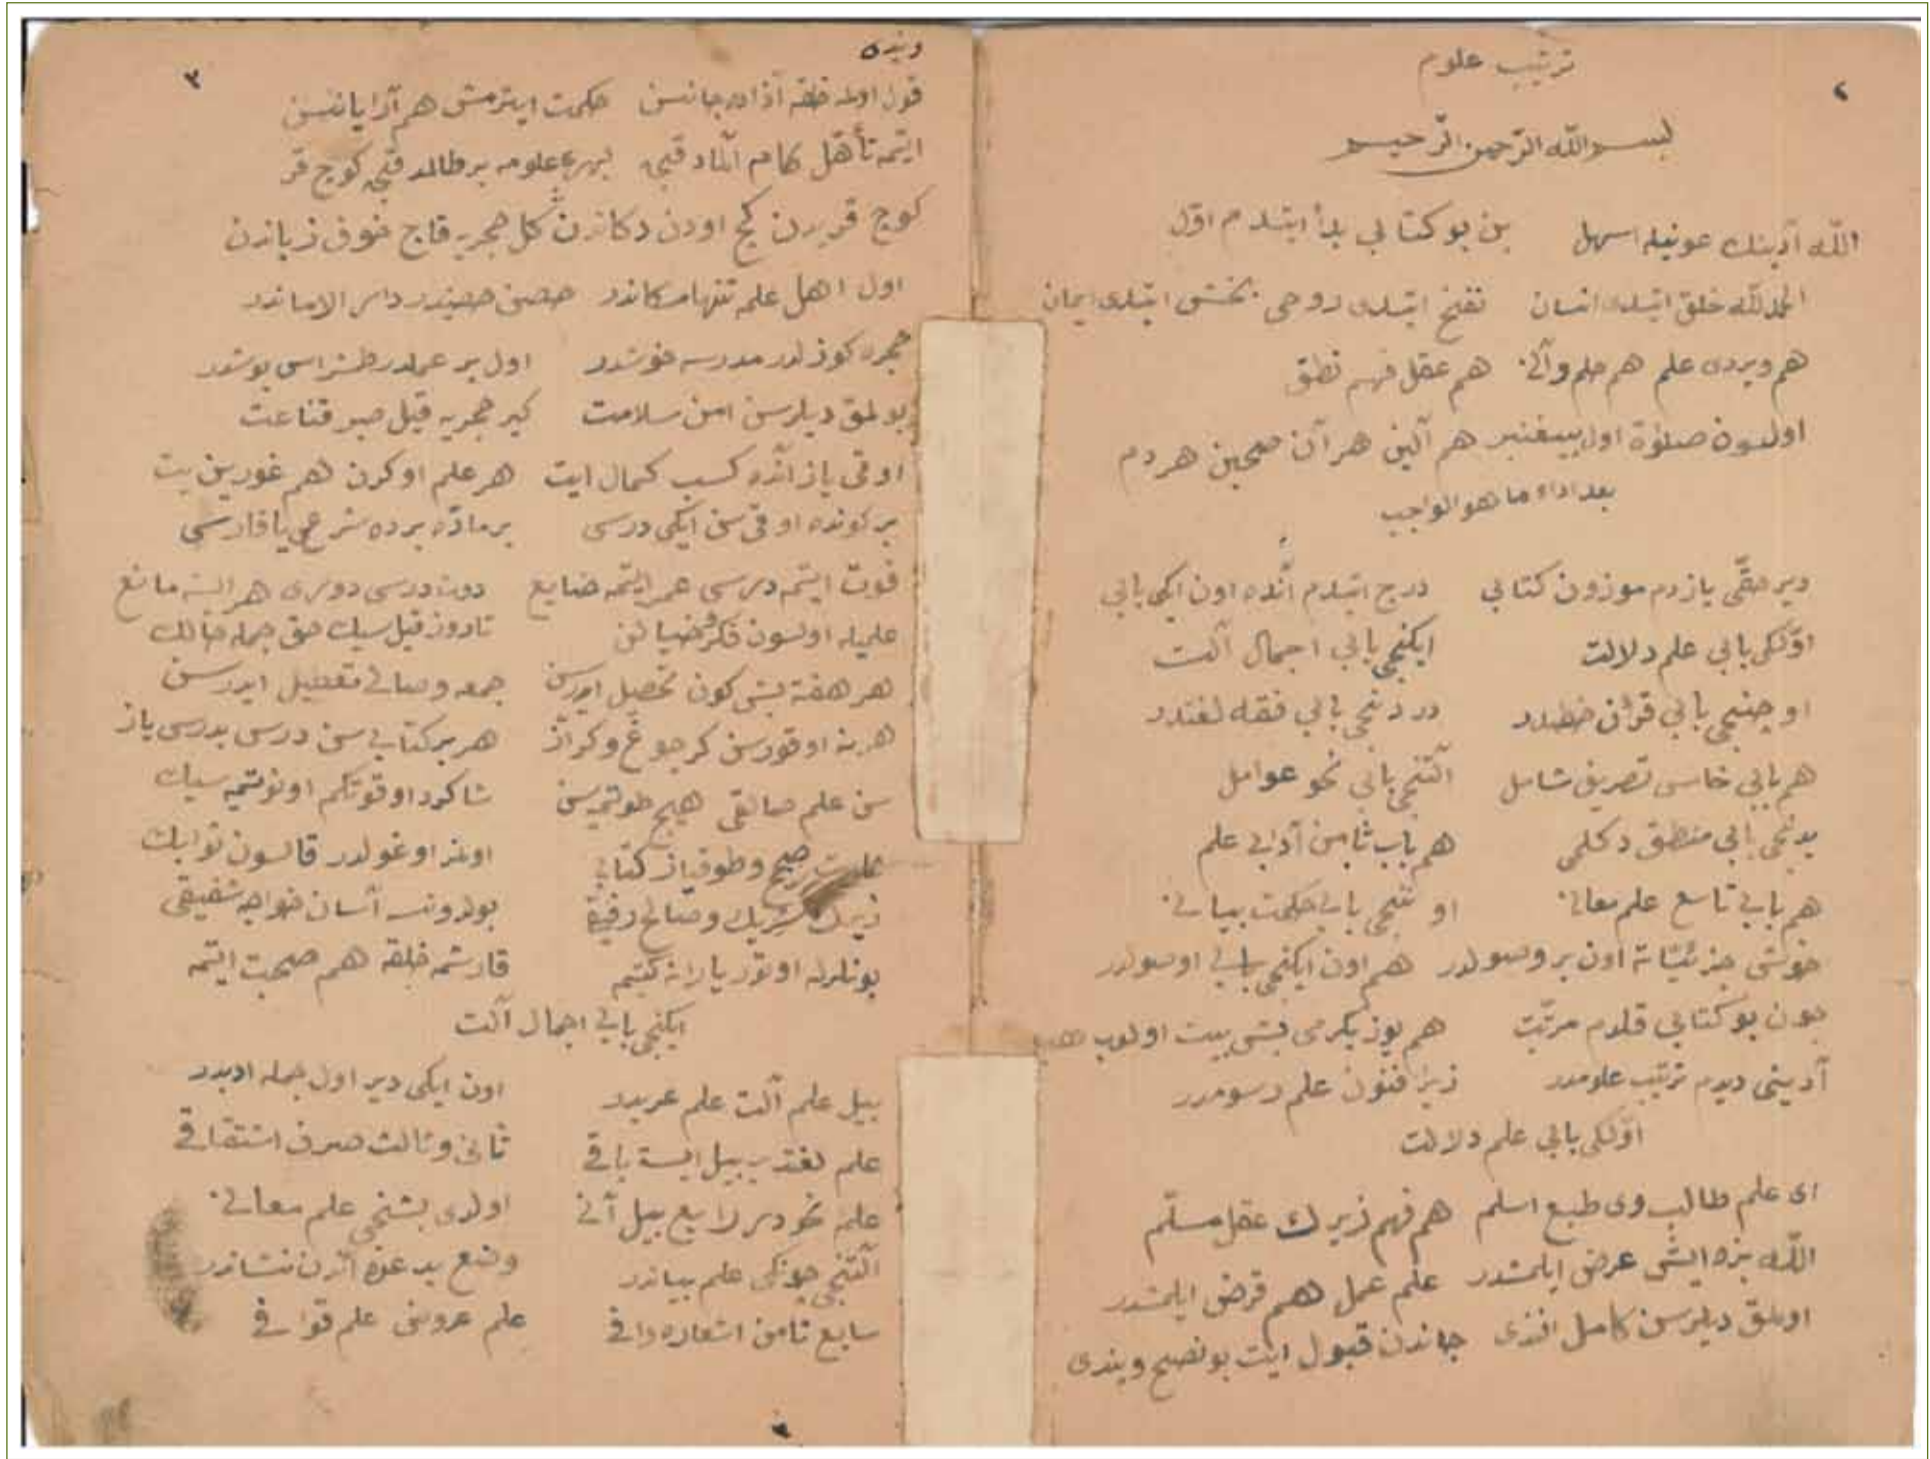 ٢
ترتيب علوم
بسم الله الرّحمن الرّحيم
اللّه آدينك عونيله اسهل بن بو كتابي بدأ ايتدم اوّل
الحمد للّه خلق ايتدى انسان نفخ ايتدى روحى بخش ايتدى ايمان
هم ويردى علم هم حلم هم عقل فهم نطق
اولسون صلوٰة اول پيغمبر هم آلين هر آن صحبين هر دم
بعد اداء ما هو الواجب
دير حقّى يازدم موزون كتابي درج ايتدم آنده اون ايكى بابي
اوّلكى بابي علم دلالت ايكنجى بابي اجمال آلت
اوچنجى بابي قرآن خطدر دردنجى بابي فقه لغتدر
هم بابي خامس تصريف شامل آلتنجى بابي نحو عوامل
يدنجى بابي منطق دكلمى هم باب ثامن آدابي علم
هم بابي تاسع علم معانى اوننجى بابي حكمت بيانى
خوشى جزئيّاته اون بر وصولدر هم اون ايكنجى بابي اصولدر
چون بو كتابي قلدم مرتّب هم يوز يكرمى بش بيت اولوب هب
آدينى ديدم ترتيب علومدر زيرا فنون علم رسومدر
اوّلكى بابي علم دلالت
اى علم طالب وى طبع اسلم هم فهم زيرك عقل مسلّم
اللّه بزه ايشى عرض ايلمشدر علم عمل هم فرض ايلمشدر
اولمق ديلرسن كامل افندى جاندن قبول ايت بو نصح و پندى
وپندى
٣
قول اولمه خلقه آزاده جانسن حكمت ايرمش هم آرايانسن
ايتمه تأهّل علومه بر طالمد قيى كوج قر
كوج قريدن كچ اودن دكاندن كل حجريه قاچ خوف زياندن
اول اهل علمه تنها مكاندر حصن حصيندر دار الاماندر
حجره كوزلدر مدرسه خوشدر اول بر عملدر طشراسى بوشدر
بولمق ديلرسن امن سلامت كير حجريه قيل صبر قناعت
اوقى ياز آنده كسب كمال ايت هر علم اوكرن هم غورين يت
بر كونده اوقى سن ايكى درسى بر مادّه برده شرعى يا فارسى
فوت ايتمه درسى عمر ايتمه ضايع دون درسى دونرى هر السنه مانع
علميله اولسون فكر خيالن تا دوز قيل سيك حق جمله حالك
هر هفته بش كون تحصيل ايدرسن جمعه و صالى تعطيل ايدرسن
هر نه اوقورسن كر چوغ و كر آز هر بر كتابي سن درس بدرسى ياز
سن علم صاقى هيچ طوتميسن شاكرد اوقوتكم اونوتميه سيك
صحيح و طوقياز كتابي اولمز اوغولدر قالسون ثوابك
زيرك شريك و صالح رفيقى بولدونسه آسان خواجه شفيقى
بونلرله اوتور يارانه كيتمه قارشمه خلقه هم صحبت ايتمه
ايكنجى بابي اجمال آلت
بيل علم آلت علم عربدر اون ايكى دير اول جمله ادبدر
علم لغتدر بيل ايسته باقى ثانى و ثالث صرف اشتقاقى
علم نحودر رابع بيل آنى اولدى بشنجى علم معانى
آلتنجى چونكى علم بياندر وضع بدعده آندن نشاندر
سابع ثامن استعاره وافى علم عروضى علم قوافى
٣